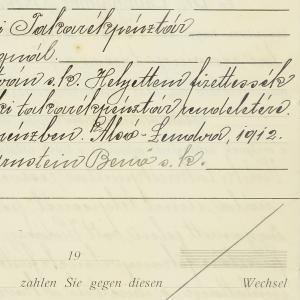 i Takarékpénztár
ignál.
ván s. k. Helyettem fizettessék
ki takarékpénztár rendeletére.
pénzben. Alsó-Lendva, 1912.
rnstein Benő s. k.
19
zahlen Sie gegen diesen Wechsel